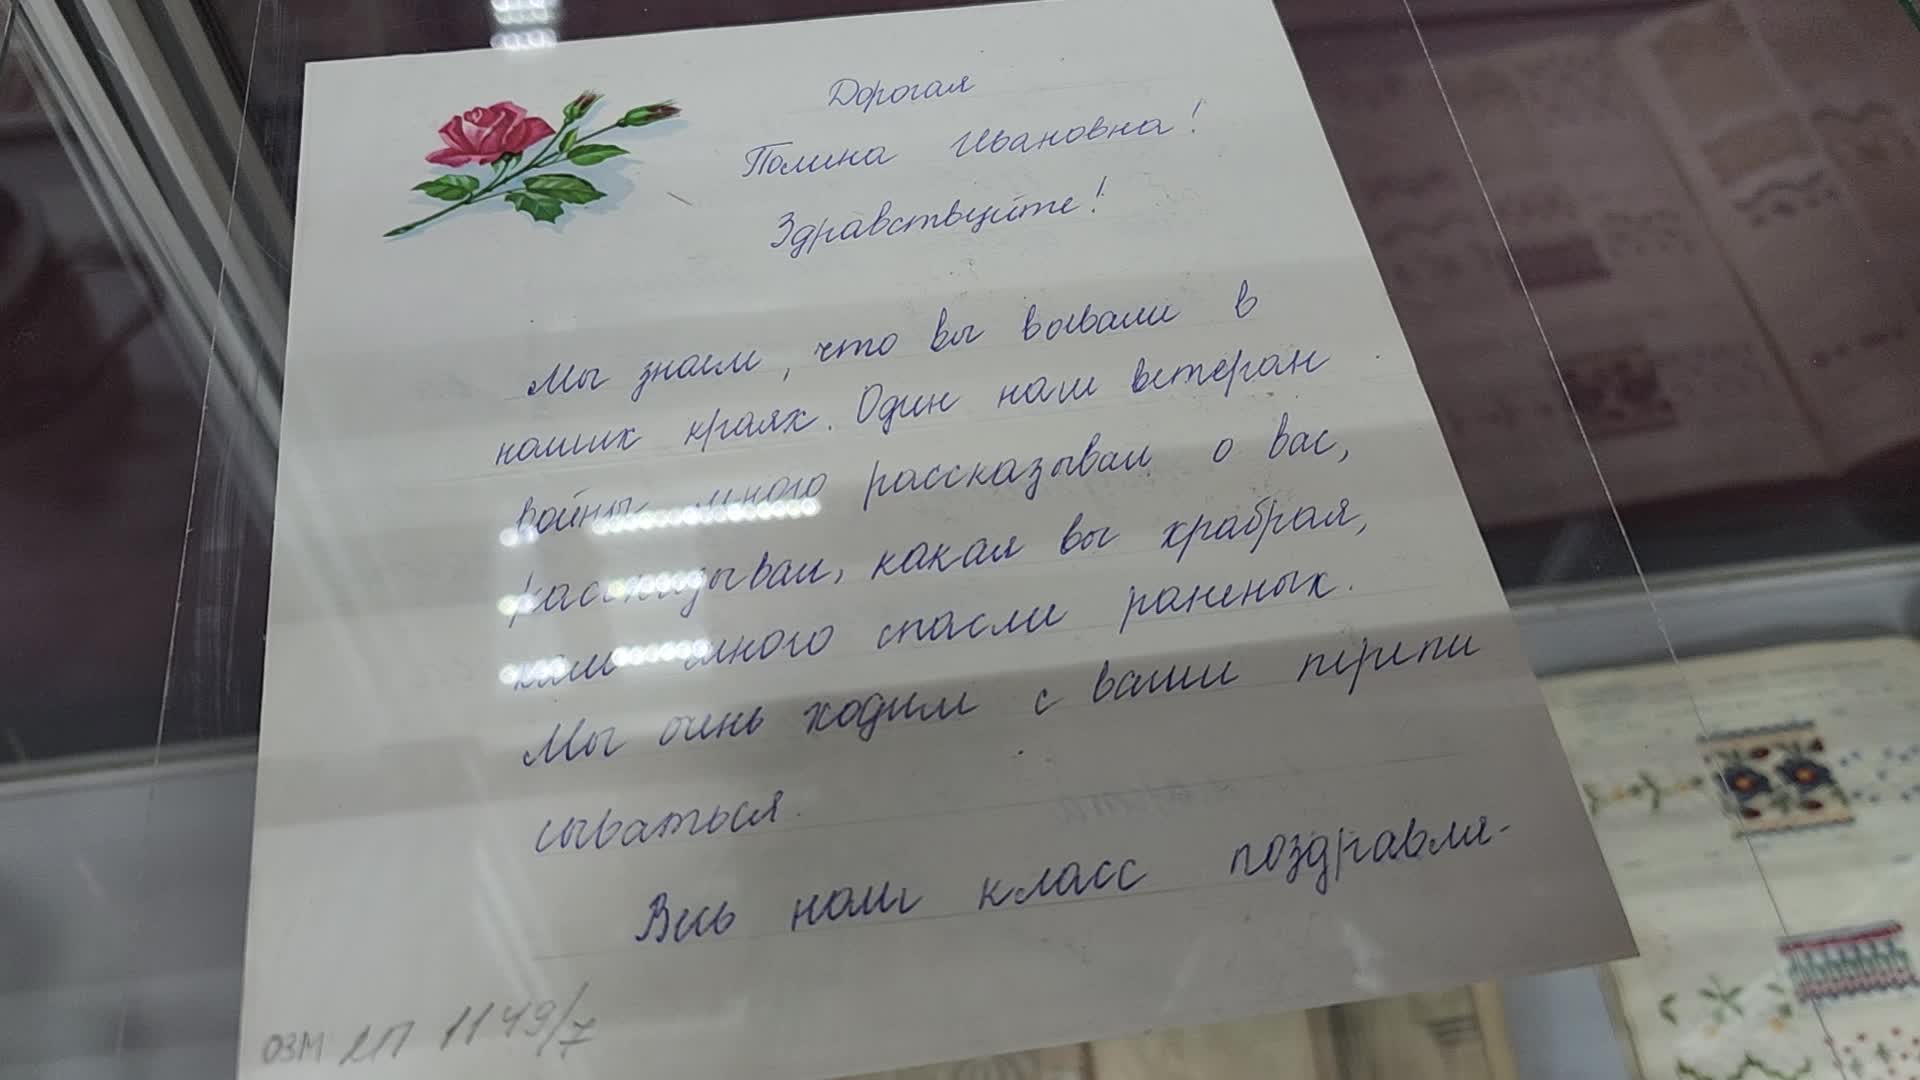 Дорогая
Полина Ивановна!
Здравствуйте!
Мы знаем, что вы воевали в
наших краях. Один наш ветеран
войны много рассказывал о вас,
рассказывал, какая вы храбрая,
как много спасли раненых.
Мы очень ходим с вами перепи
сываться.
Весь наш класс поздравля-
ОЗМ КП 1149/7